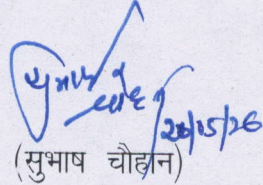 20/05/26
(सुभाष चौहान)